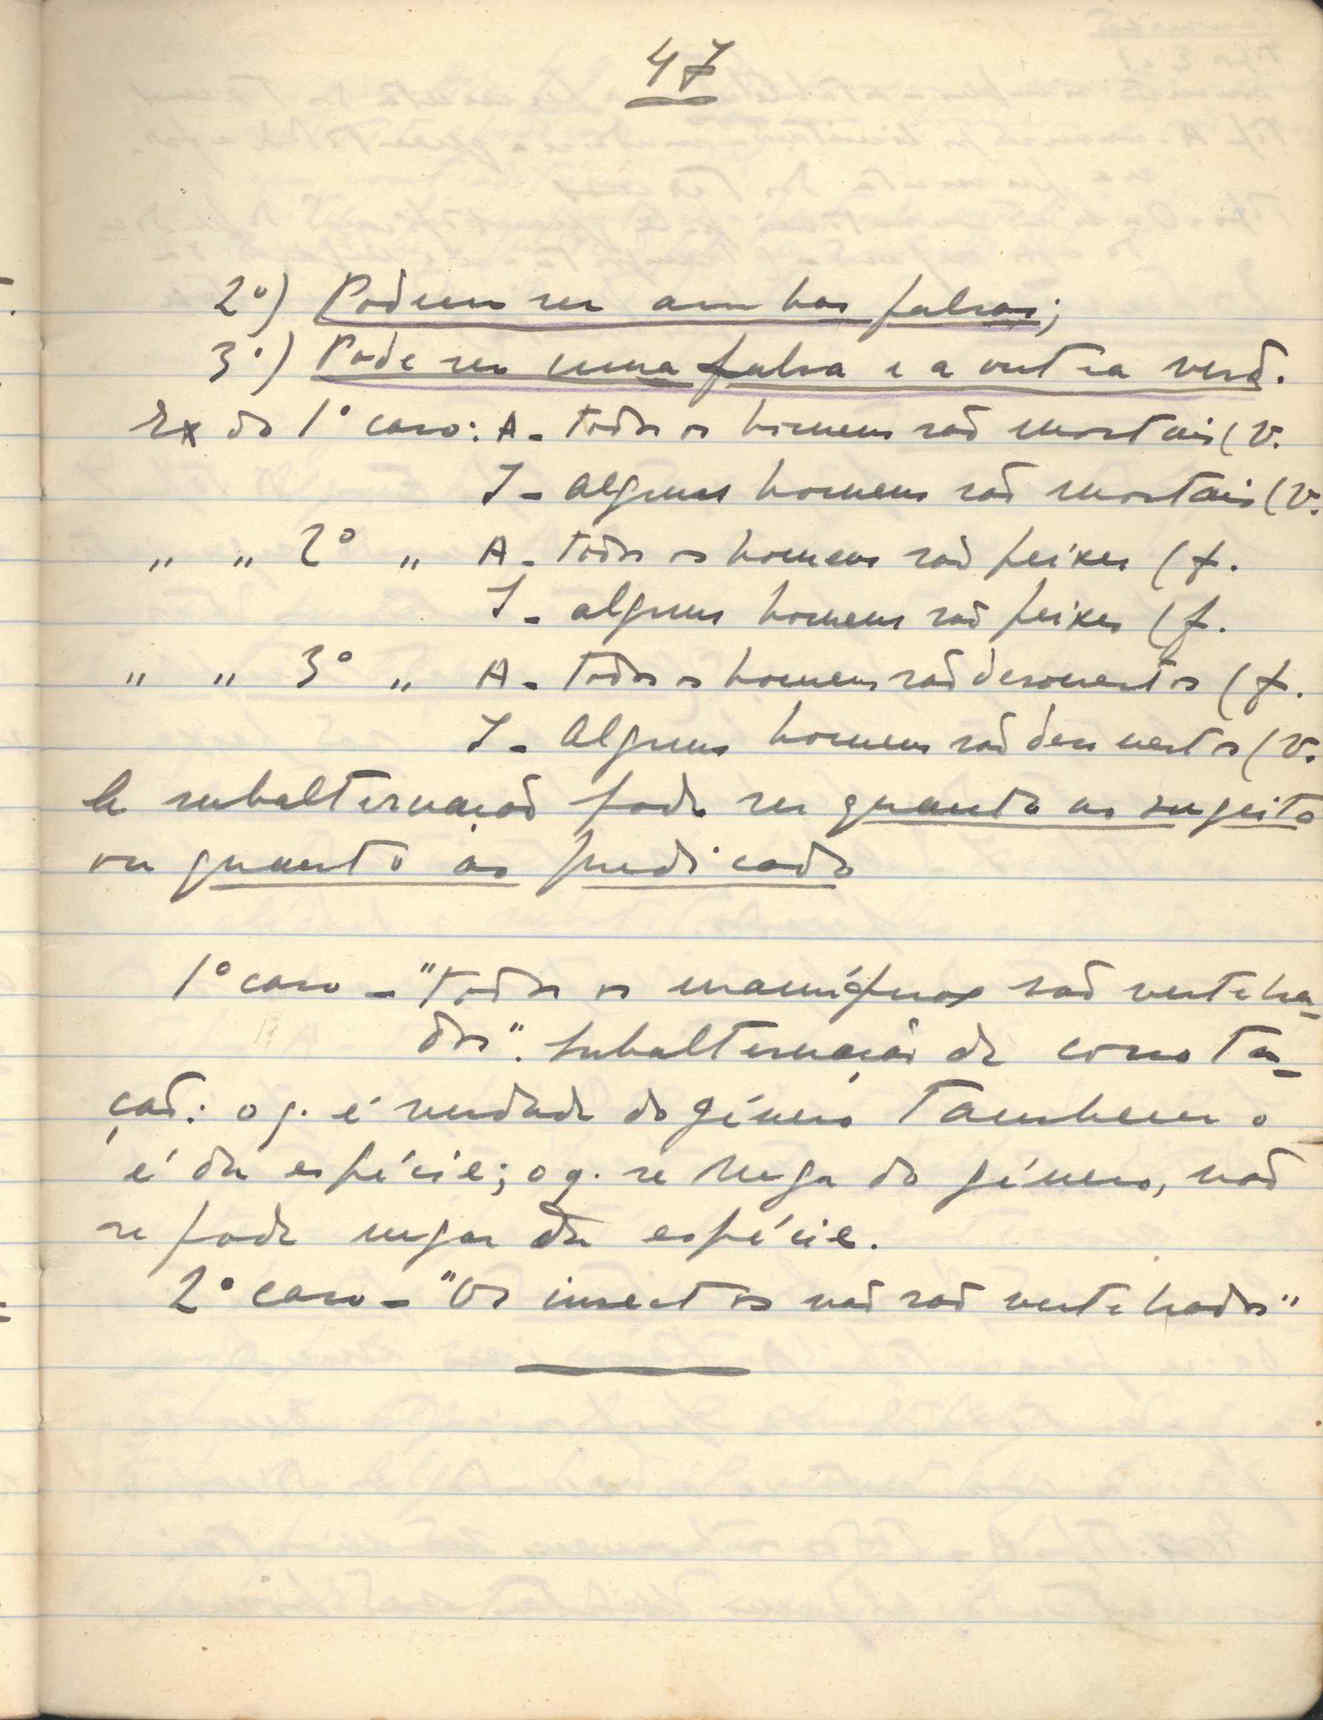 47
2º) Podem ser ambas falsas;
3º) Pode ser uma falsa e a outra verd.
Ex do 1º caso: A - todos os homens são mortais (v.
I - alguns homens são mortais (v.
" " 2º " A - todos os homens são peixes (f.
I - alguns homens são peixes (f.
" " 3º " A - todos os homens são desonestos (f.
I - Alguns homens são desonestos (v.
A subalternação pode ser quanto ao sugeito
ou quanto ao predicado
1º caso - "todos os mamíferos são vertebra-
dos". Subalternação de conota-
ção: o q. é verdade do género tambem o
é da espécie; o q. se nega do género, não
se pode negar da espécie.
2º caso - "Os insectos não são vertebrados"